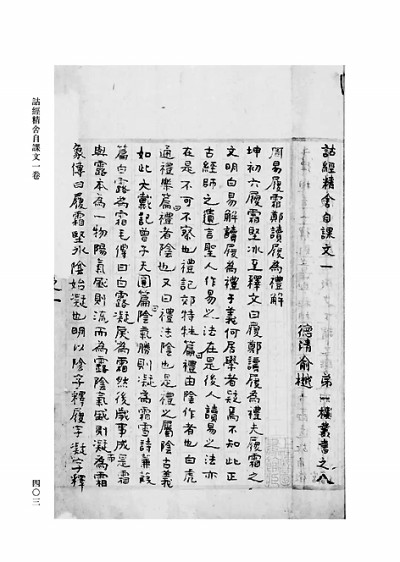 詁經精舍自課文一
第一樓叢書之八
德清俞樾
周易履霜鄭讀履為禮解
坤初六履霜堅冰至釋文曰履鄭讀履為禮夫履霜之
文明白易解讀履為禮于義何居學者疑焉不知此正
古經師之遺言聖人作易之法在是後人讀易之法亦
在是不可不察也禮記郊特牲篇禮由陰作者也白虎
通禮樂篇禮者陰也又曰禮法陰也是禮之屬陰古義
如此大戴記曾子天圓篇陰氣勝則凝為霜雪詩蒹葭
篇白露為霜毛傳曰白露凝戾為霜然後歲事成是霜
與露本為一物陽氣盛則流而為露陰氣盛則凝為霜
象傳曰履霜堅冰陰始凝也明以陰字釋履字凝字釋
詁經精舍自課文一卷
四〇三